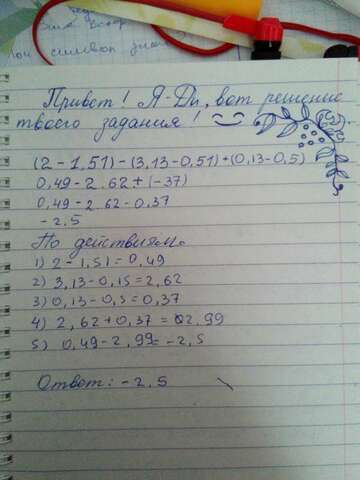 Привет! Я-Ди, вот решение
твоего задания!
(2-1,51)-(3,13-0,51)+(0,13-0,5)
0,49-2.62+(-37)
0,49-2.62-0,37
-2,5
По действиям.
1) 2-1,51=0,49
2) 3,13-0,15=2,62
3) 0,13-0,5=0,37
4) 2,62+0,37=02,99
5) 0,49-2,99=-2,5
Ответ: -2,5